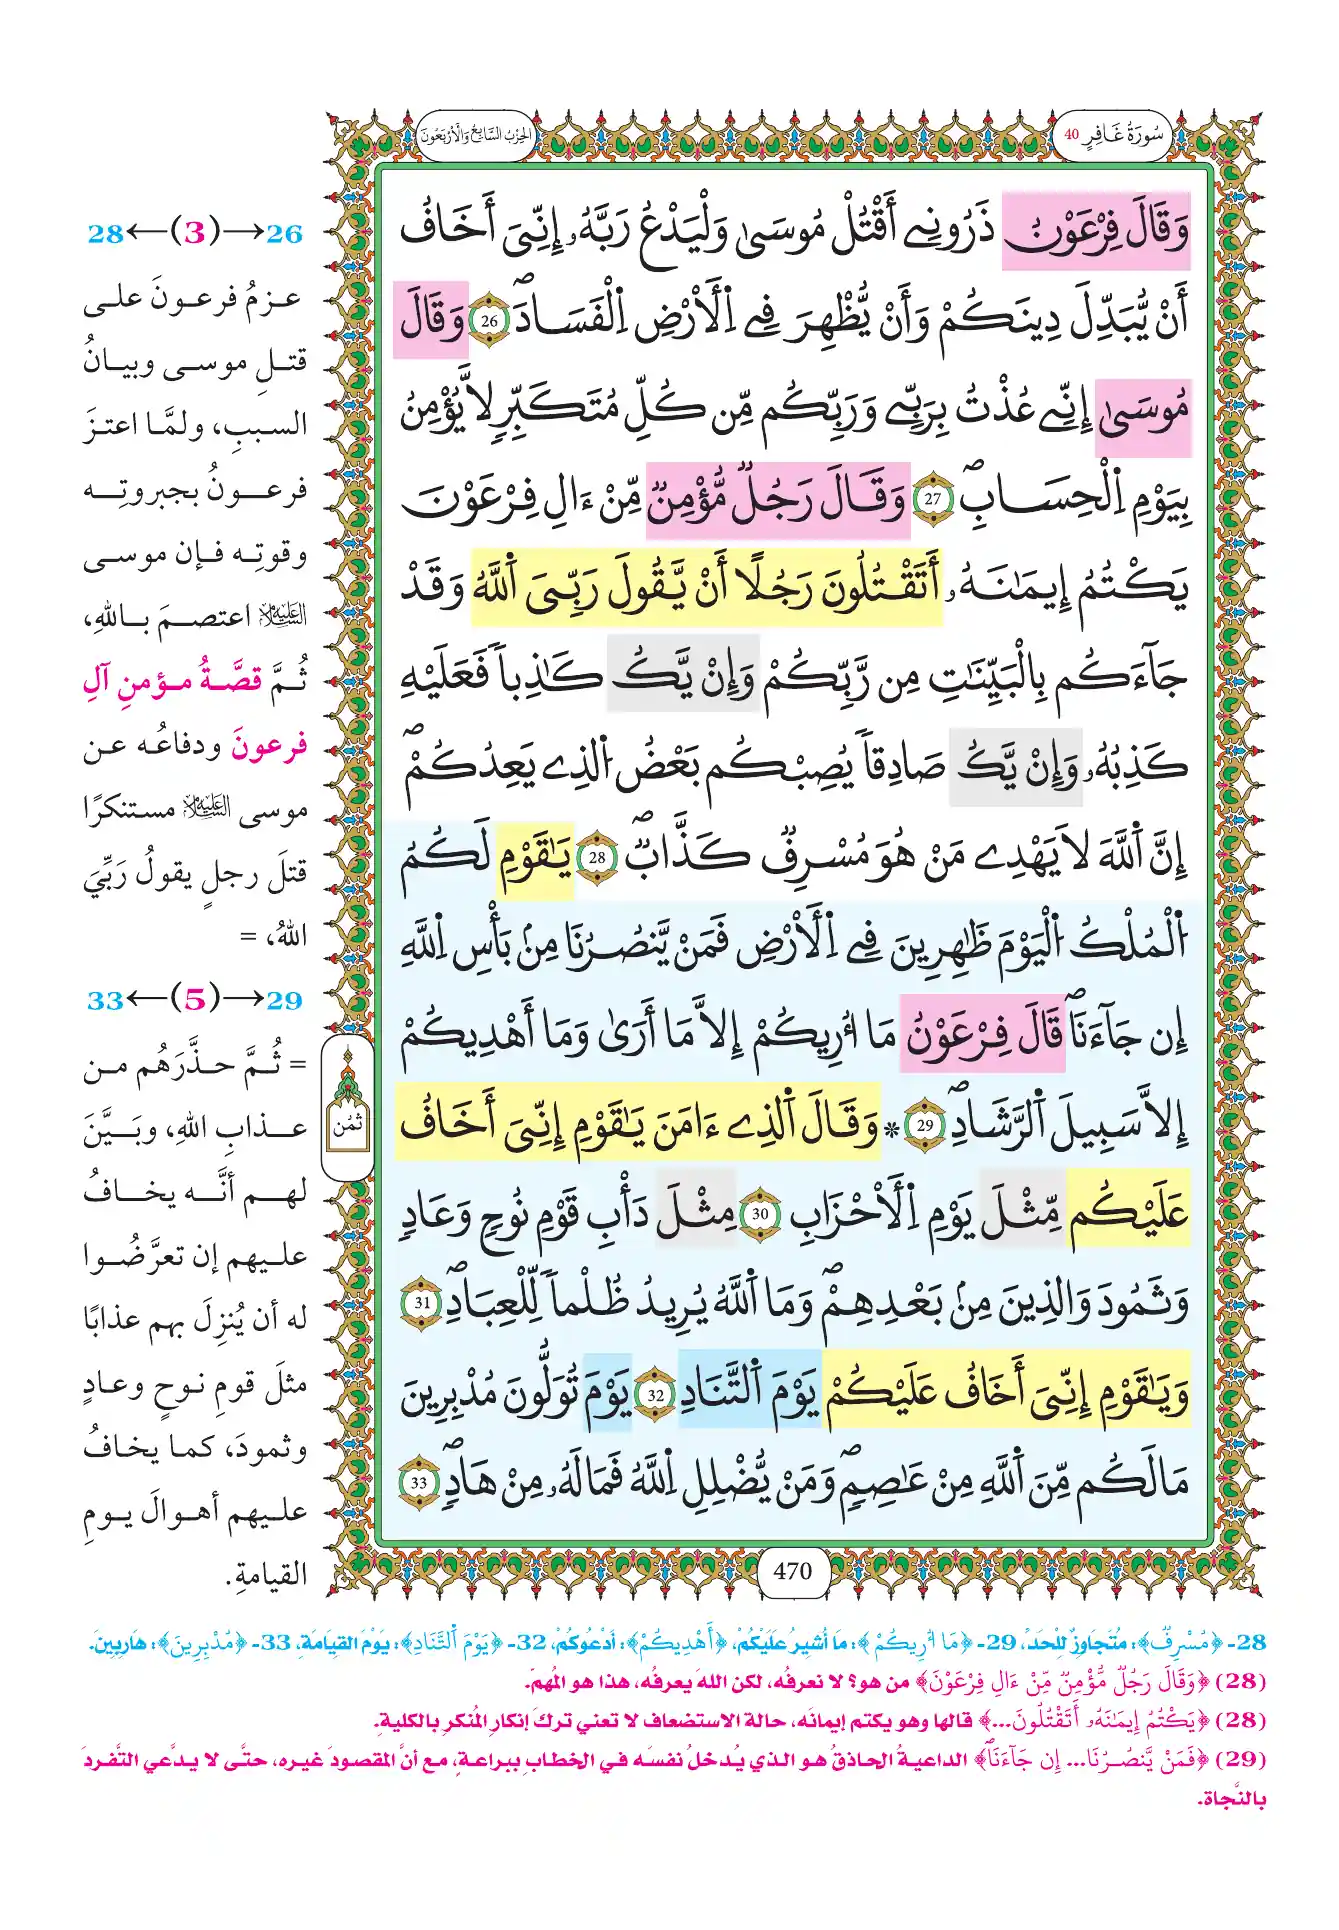 سُورَةُ غَافِرٍ 40
الحِزْبُ السَّابِعُ وَالْأَرْبَعُونَ
وَقَالَ فِرْعَوْنُ ذَرُونِےٓ أَقْتُلْ مُوسَىٰ وَلْيَدْعُ رَبَّهُۥٓ إِنِّىَ أَخَافُ
أَنْ يُّبَدِّلَ دِينَكُمْ وَأَنْ يُّظْهِرَ فِے اِلَارْضِ اِلْفَسَادَۖ 26 وَقَالَ
مُوسَىٰٓ إِنِّے عُذْتُ بِرَبِّے وَرَبِّكُم مِّن كُلِّ مُتَكَبِّرٖ لَّا يُؤْمِنُ
بِيَوْمِ اِلْحِسَابِۖ 27 وَقَالَ رَجُلٞ مُّؤْمِنٞ مِّنْ ءَالِ فِرْعَوْنَ
يَكْتُمُ إِيمَٰنَهُۥٓ أَتَقْتُلُونَ رَجُلًا أَنْ يَّقُولَ رَبِّىَ اَ۬للَّهُ وَقَدْ
جَآءَكُم بِالْبَيِّنَٰتِ مِن رَّبِّكُمْ وَإِنْ يَّكُ كَٰذِباٗ فَعَلَيْهِ
كَذِبُهُۥ وَإِنْ يَّكُ صَادِقاٗ يُصِبْكُم بَعْضُ اُ۬لذِے يَعِدُكُمْۖ
إِنَّ اَ۬للَّهَ لَا يَهْدِے مَنْ هُوَ مُسْرِفٞ كَذَّابٞۖ 28 يَٰقَوْمِ لَكُمُ
اُ۬لْمُلْكُ اُ۬لْيَوْمَ ظَٰهِرِينَ فِے اِلَارْضِ فَمَنْ يَّنصُرُنَا مِنۢ بَأْسِ اِ۬للَّهِ
إِن جَآءَنَاۖ قَالَ فِرْعَوْنُ مَآ أُرِيكُمُۥٓ إِلَّا مَآ أَرَىٰ وَمَآ أَهْدِيكُمُۥٓ
إِلَّا سَبِيلَ اَ۬لرَّشَادِۖ 29 * وَقَالَ اَ۬لذِےٓ ءَامَنَ يَٰقَوْمِ إِنِّىَ أَخَافُ
عَلَيْكُم مِّثْلَ يَوْمِ اِلَاحْزَابِ 30 مِثْلَ دَأْبِ قَوْمِ نُوحٖ وَعَادٖ
وَثَمُودَ وَالذِينَ مِنۢ بَعْدِهِمْۖ وَمَا اَ۬للَّهُ يُرِيدُ ظُلْماٗ لِّلْعِبَادِۖ 31
وَيَٰقَوْمِ إِنِّىَ أَخَافُ عَلَيْكُمْ يَوْمَ اَ۬لتَّنَادِ 32 يَوْمَ تُوَلُّونَ مُدْبِرِينَ
مَا لَكُم مِّنَ اَ۬للَّهِ مِنْ عَاصِمٖۖ وَمَنْ يُّضْلِلِ اِ۬للَّهُ فَمَا لَهُۥ مِنْ هَادٖۖ 33
ثمن
470
26→(3)←28
عزمُ فرعونَ على
قتلِ موسى وبيانُ
السببِ، ولمَّا اعتزَ
فرعونُ بجبروتِه
وقوتِه فإن موسى
عليه السلام اعتصمَ باللهِ،
ثُمَّ قصَّةُ مؤمنِ آلِ
فرعونَ ودفاعُه عن
موسى عليه السلام مستنكرًا
قتلَ رجلٍ يقولُ رَبِّيَ
اللهُ، =
29→(5)←33
= ثُمَّ حذَّرَهُم من
عذابِ اللهِ، وبَيَّنَ
لهم أنَّه يخافُ
عليهم إن تعرَّضُوا
له أن يُنزِلَ بهم عذابًا
مثلَ قومِ نوحٍ وعادٍ
وثمودَ، كما يخافُ
عليهم أهوالَ يومِ
القيامةِ.
28- ﴿مُسْرِفٞ﴾: مُتَجَاوِزٌ لِلْحَدِّ، 29- ﴿مَآ أُرِيكُمْ﴾: مَا أُشِيرُ عَلَيْكُمْ، ﴿أَهْدِيكُمْ﴾: أَدْعُوكُمْ، 32- ﴿يَوْمَ اَ۬لتَّنَادِ﴾: يَوْمَ القِيَامَةِ، 33- ﴿مُدْبِرِينَ﴾: هَارِبِينَ.
(28) ﴿وَقَالَ رَجُلٞ مُّؤْمِنٞ مِّنْ ءَالِ فِرْعَوْنَ﴾ من هو؟ لا نعرفُه، لكن اللهَ يعرفُه، هذا هو المُهمّ.
(28) ﴿يَكْتُمُ إِيمَٰنَهُۥٓ أَتَقْتُلُونَ...﴾ قالها وهو يكتم إيمانَه، حالة الاستضعاف لا تعني تركَ إنكارِ المُنكرِ بالكليةِ.
(29) ﴿فَمَنْ يَّنصُرُنَا... إِن جَآءَنَاۖ﴾ الداعيةُ الحاذقُ هو الذي يُدخلُ نفسَه في الخطابِ ببراعةٍ، مع أنَّ المقصودَ غيره، حتَّى لا يدَّعي التَّفردَ
بالنَّجاة.